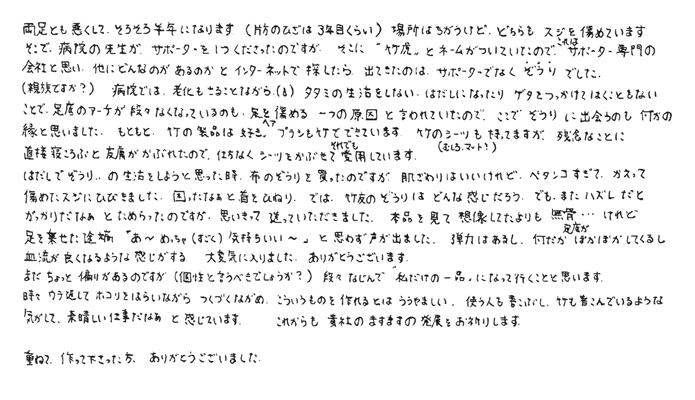 両足とも悪くして、そろそろ半年になります (片方のひざは 3年目くらい) 場所はちがうけど、どちらも スジを傷めています
そこで、病院の先生が、サポーターを1つくださったのですが、そこに "竹虎" とネームがついていたので、これはサポーター専門の
会社と思い、他にどんなのがあるのかとインターネットで探したら、出てきたのは、サポーターでなく ぞうり でした。
(親族ですか?) 病院では、老化もさることながら、タタミの生活をしない、はだしになったり ゲタをつっかけてはくこともない
ことで、足底のアーチが段々なくなっているのも、足を傷める 一つの原因 と言われていたので、ここで ぞうり に出会うのも 何かの
縁と思いました。もともと、竹の製品は 好き。ヘアブラシも竹で できています 竹のシーツも 持ってますが、残念なことに
直接寝ころぶと皮膚がかぶれたので、仕方なくシーツをかぶせて それでも愛用しています。(むしろ、マット?)
はだしでぞうり、の生活をしようと思った時、布のぞうりを買ったのですが、肌ざわりはいいけれど、ペタンコすぎて、かえって
傷めたスジにひびきました。困ったなぁと首をひねり、では、竹皮のぞうりは どんな感じだろう、でも、またハズレだと
がっかりだなぁ とためらったのですが、思いきって 送っていただきました。本品を見て 想像してたよりも 無骨… けれど
足を乗せた途端 「あ～ めっちゃ(すごく) 気持ちいい～」 と思わず声が出ました。弾力はあるし、何だか足底がぽかぽかしてくるし
血流が良くなるような感じがする 大変気に入りました。ありがとうございます。
まだちょっと偏りがあるのですが (個性と言うべきでしょうか?) 段々なじんで「私だけの一品」になって行くことと思います。
時々ウラ返してホコリをはらいながら つくづくながめ、こういうものを作れるとは うらやましい、使う人も喜こぶし、竹も喜こんでいるような
気がして、素晴しい仕事だなぁ と感じています。 これからも 貴社の ますますの 発展をお祈りします。
重ねて、作って下さった方、ありがとうございました。